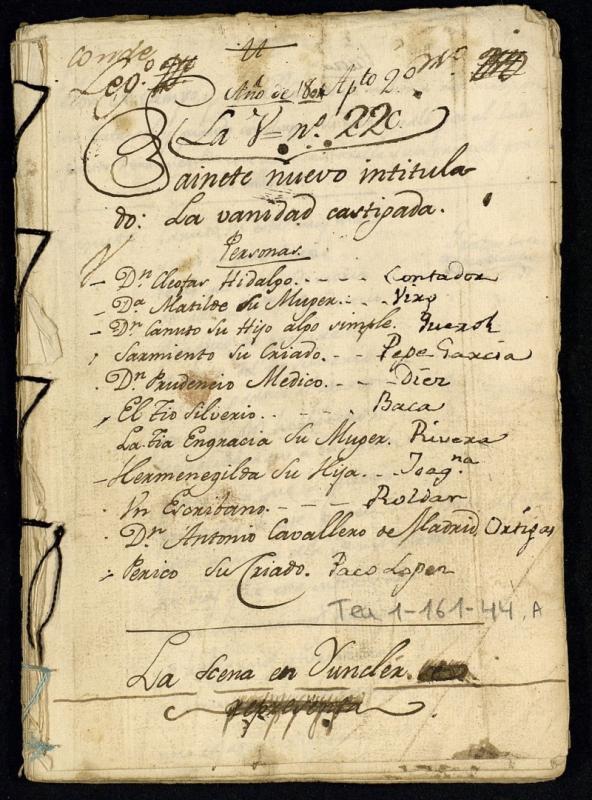 Leg.º Apto 2.º
Año de 1804
La V nº. 22.
Sainete nuevo intitula
do: La vanidad castigada.
Personas.
Dn. Cleofas Hidalgo. Contador
Da. Matilde su Muger. Virg
Dn. Canuto su Hijo algo simple. Querol
Sarmiento su Criado. Pepe Garcia
Dn. Prudencio Medico. Diez
El Tio Silverio. Baca
La Tia Engracia su Muger. Rivera
Hermenegilda su Hija. Joaqna
Vn Escribano. Roldan
Dn. Antonio Cavallero de Madrid Ortigas
Perico su Criado. Paco Lopez
Tea 1-161-44, A
La scena en Yuncler.